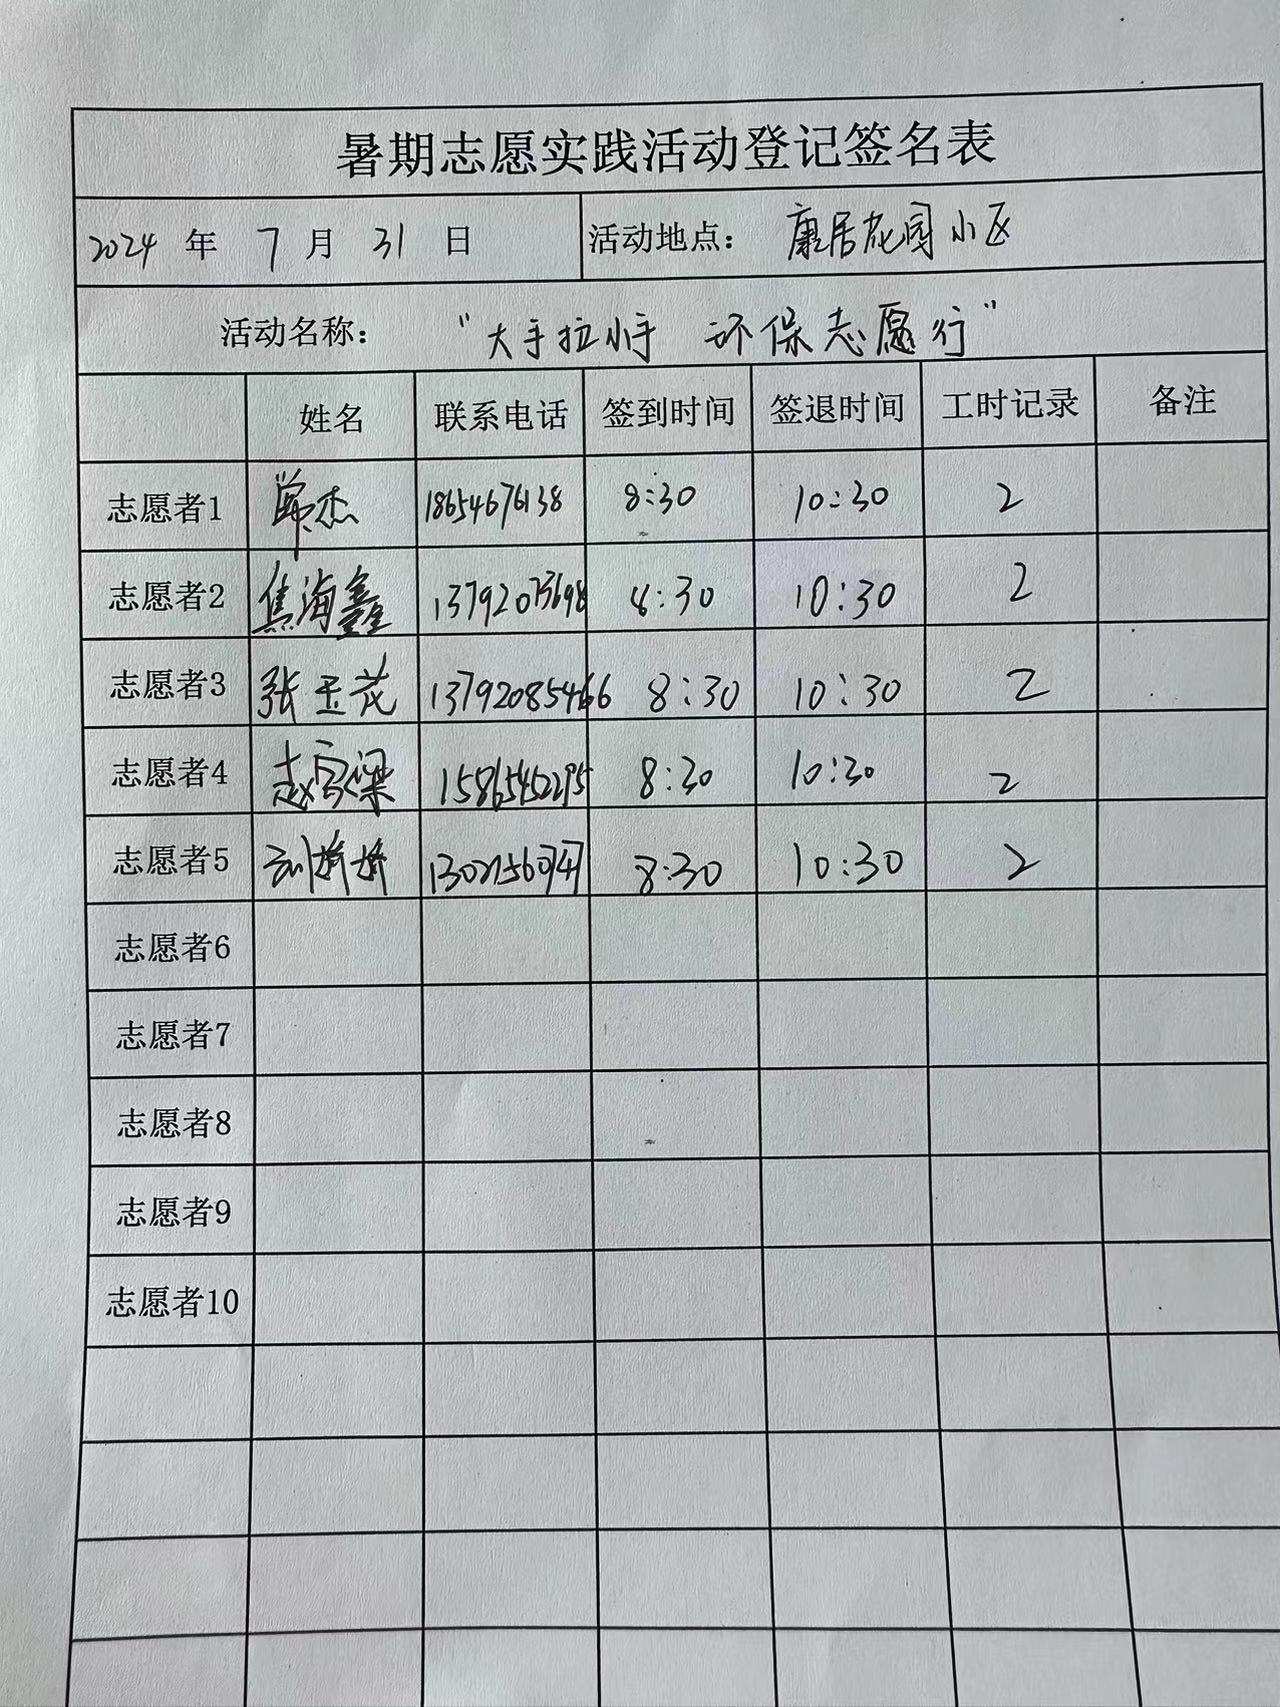 暑期志愿实践活动登记签名表
2024 年 7 月 31 日 活动地点： 康居花园小区
活动名称： “大手拉小手 环保志愿行”
姓名 联系电话 签到时间 签退时间 工时记录 备注
志愿者1 杰 18654676138 8:30 10:30 2
志愿者2 焦海鑫 13792073698 8:30 10:30 2
志愿者3 张玉花 13792085466 8:30 10:30 2
志愿者4 赵家梁 15865452295 8:30 10:30 2
志愿者5 刘娇娇 8:30 10:30 2
志愿者6
志愿者7
志愿者8
志愿者9
志愿者10